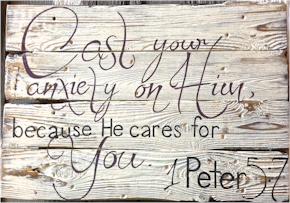 Cast your
anxiety on Him,
because He cares for
You. 1 Peter 5:7